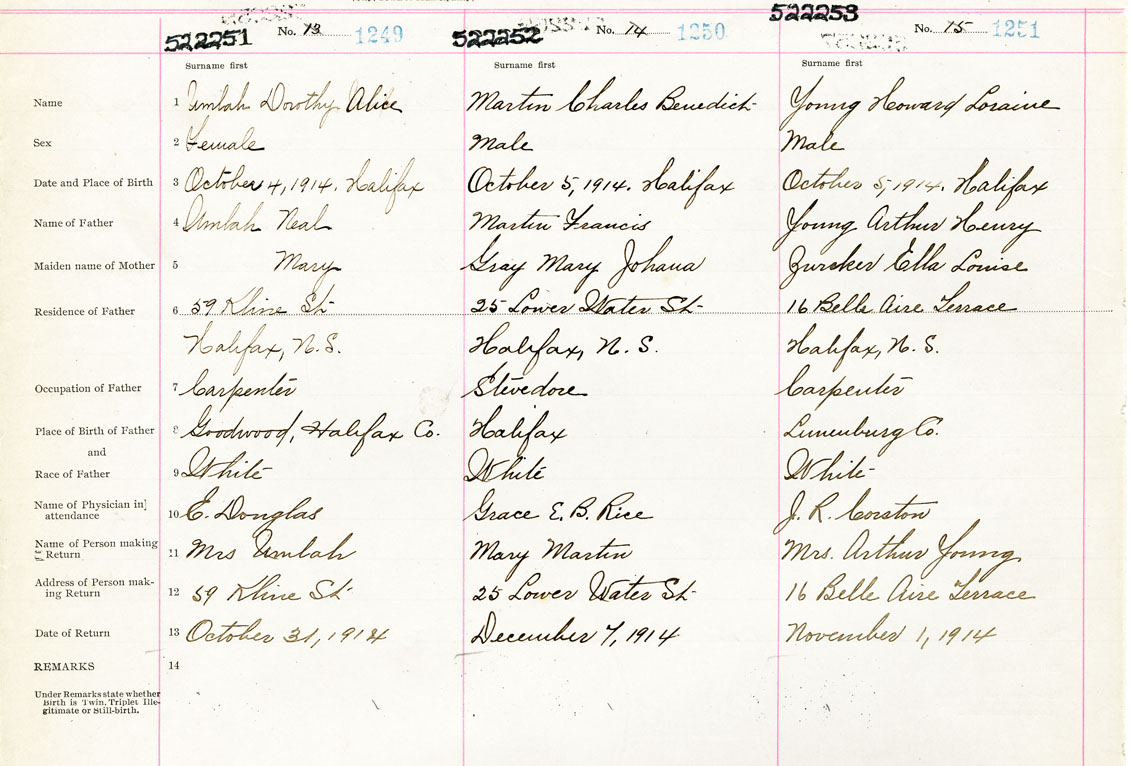 522251 No. 13 1249 522252 No. 14 1250 522253 No. 15 1251
Surname first Surname first Surname first
Name 1 Umlah Dorothy Alice Martin Charles Benedict Young Howard Loraine
Sex 2 Female Male Male
Date and Place of Birth 3 October 4, 1914. Halifax October 5, 1914. Halifax October 5, 1914. Halifax
Name of Father 4 Umlah Neal Martin Francis Young Arthur Henry
Maiden name of Mother 5 Mary Gray Mary Johana Zwicker Ella Louise
Residence of Father 6 59 Kline St 25 Lower Water St 16 Belle Aire Terrace
Halifax, N.S. Halifax, N.S. Halifax, N.S.
Occupation of Father 7 Carpenter Stevedore Carpenter
Place of Birth of Father 8 Goodwood, Halifax Co. Halifax Lunenburg Co.
and
Race of Father 9 White White White
Name of Physician in attendance 10 E. Donglas Grace E. B. Rice J. R. Corston
Name of Person making Return 11 Mrs Umlah Mary Martin Mrs. Arthur Young
Address of Person mak-
ing Return 12 59 Kline St 25 Lower Water St 16 Belle Aire Terrace
Date of Return 13 October 31, 1914 December 7, 1914 November 1, 1914
REMARKS 14
Under Remarks state whether
Birth is Twin, Triplet Ille-
gitimate or Still-birth.